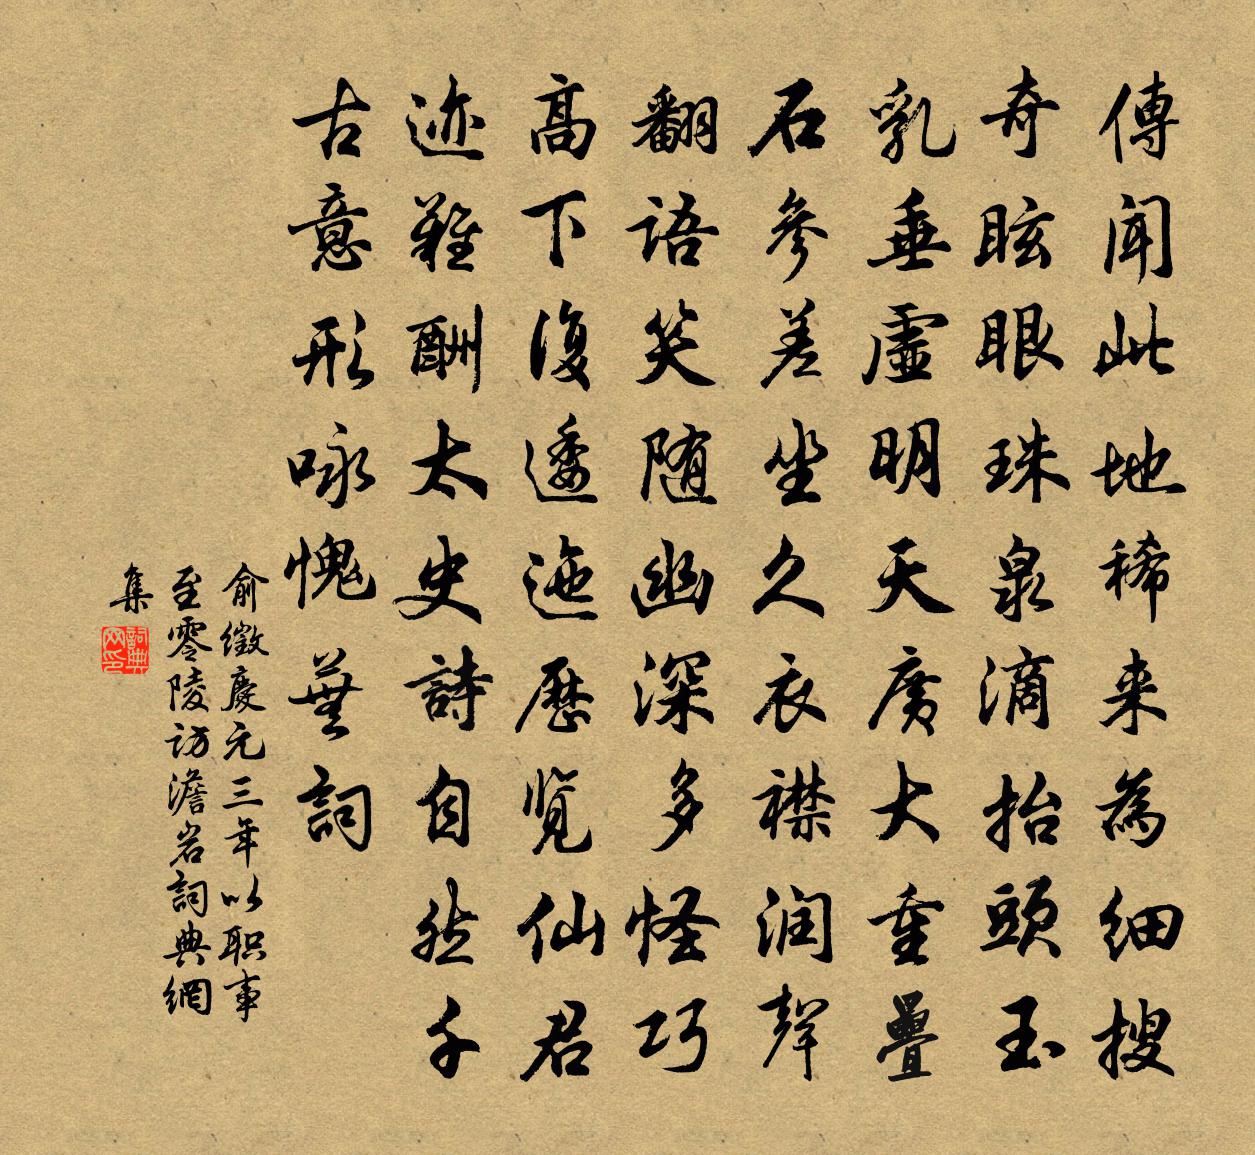 傳聞此地稀来為細搜
奇眩眼珠泉滴抬頭玉
乳垂虛明天广大重疊
石參差坐久衣襟润聲
翻語笑随幽深多怪巧
高下復逶迤歷覧仙君
迹難酬太史詩自然千
古意形咏愧蕪詞
俞徵慶元三年以职事
至零陵访澹岩詞典網
集
詞典网印